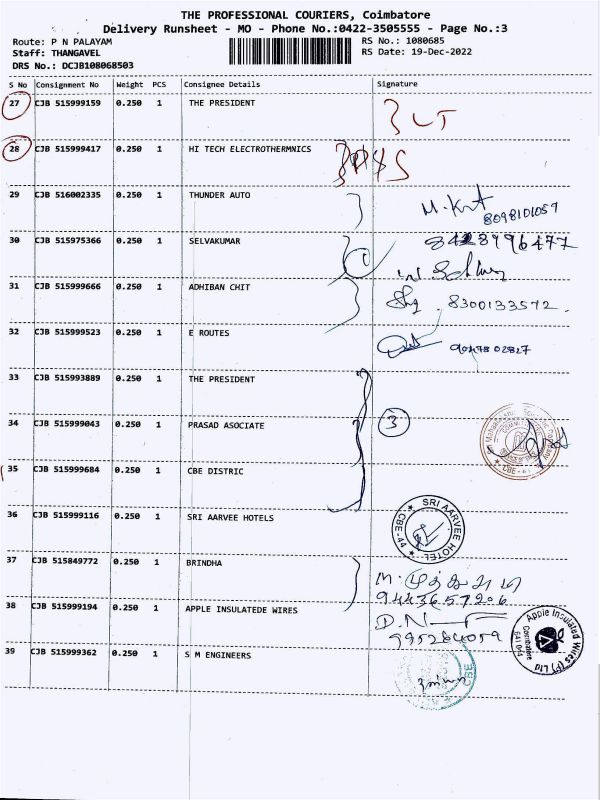 THE PROFESSIONAL COURIERS, Coimbatore
Delivery Runsheet - MO - Phone No.:0422-3505555 - Page No.:3
Route: P N PALAYAM RS No.: 1080685
Staff: THANGAVEL RS Date: 19-Dec-2022
DRS No.: DCJB108068503
S No Consignment No Weight PCS Consignee Details Signature
27 CJB 515999159 0.250 1 THE PRESIDENT
28 CJB 515999417 0.250 1 HI TECH ELECTROTHERMNICS
29 CJB 516002335 0.250 1 THUNDER AUTO
8098101057
30 CJB 515975366 0.250 1 SELVAKUMAR
31 CJB 515999666 0.250 1 ADHIBAN CHIT 8300133572
32 CJB 515999523 0.250 1 E ROUTES
33 CJB 515993889 0.250 1 THE PRESIDENT
34 CJB 515999043 0.250 1 PRASAD ASOCIATE 3
35 CJB 515999684 0.250 1 CBE DISTRIC
36 CJB 515999116 0.250 1 SRI AARVEE HOTELS
SRI AARVEE HOTEL
CBE-44
37 CJB 515849772 0.250 1 BRINDHA
9443657206
38 CJB 515999194 0.250 1 APPLE INSULATEDE WIRES
Apple Insulated Wires (P) Ltd
Coimbatore
39 CJB 515999362 0.250 1 S M ENGINEERS